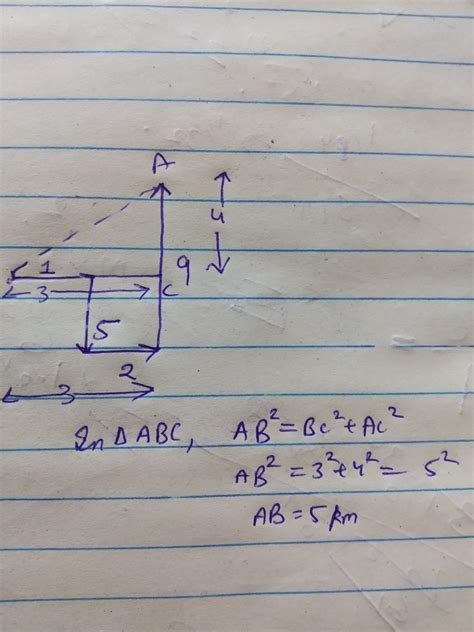 A
4
1
9
3
C
5
2
3
In Δ ABC, AB² = BC² + AC²
AB² = 3² + 4² = 5²
AB = 5 km